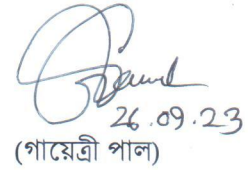 26.09.23
(গায়েত্রী পাল)